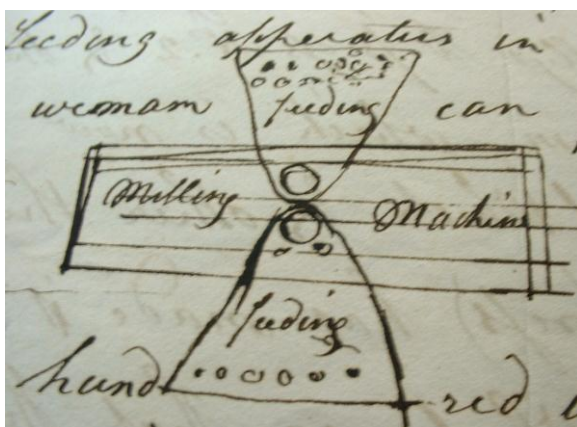 feeding apparatus in
woman feeding can
Milling Machine
feeding
hand red